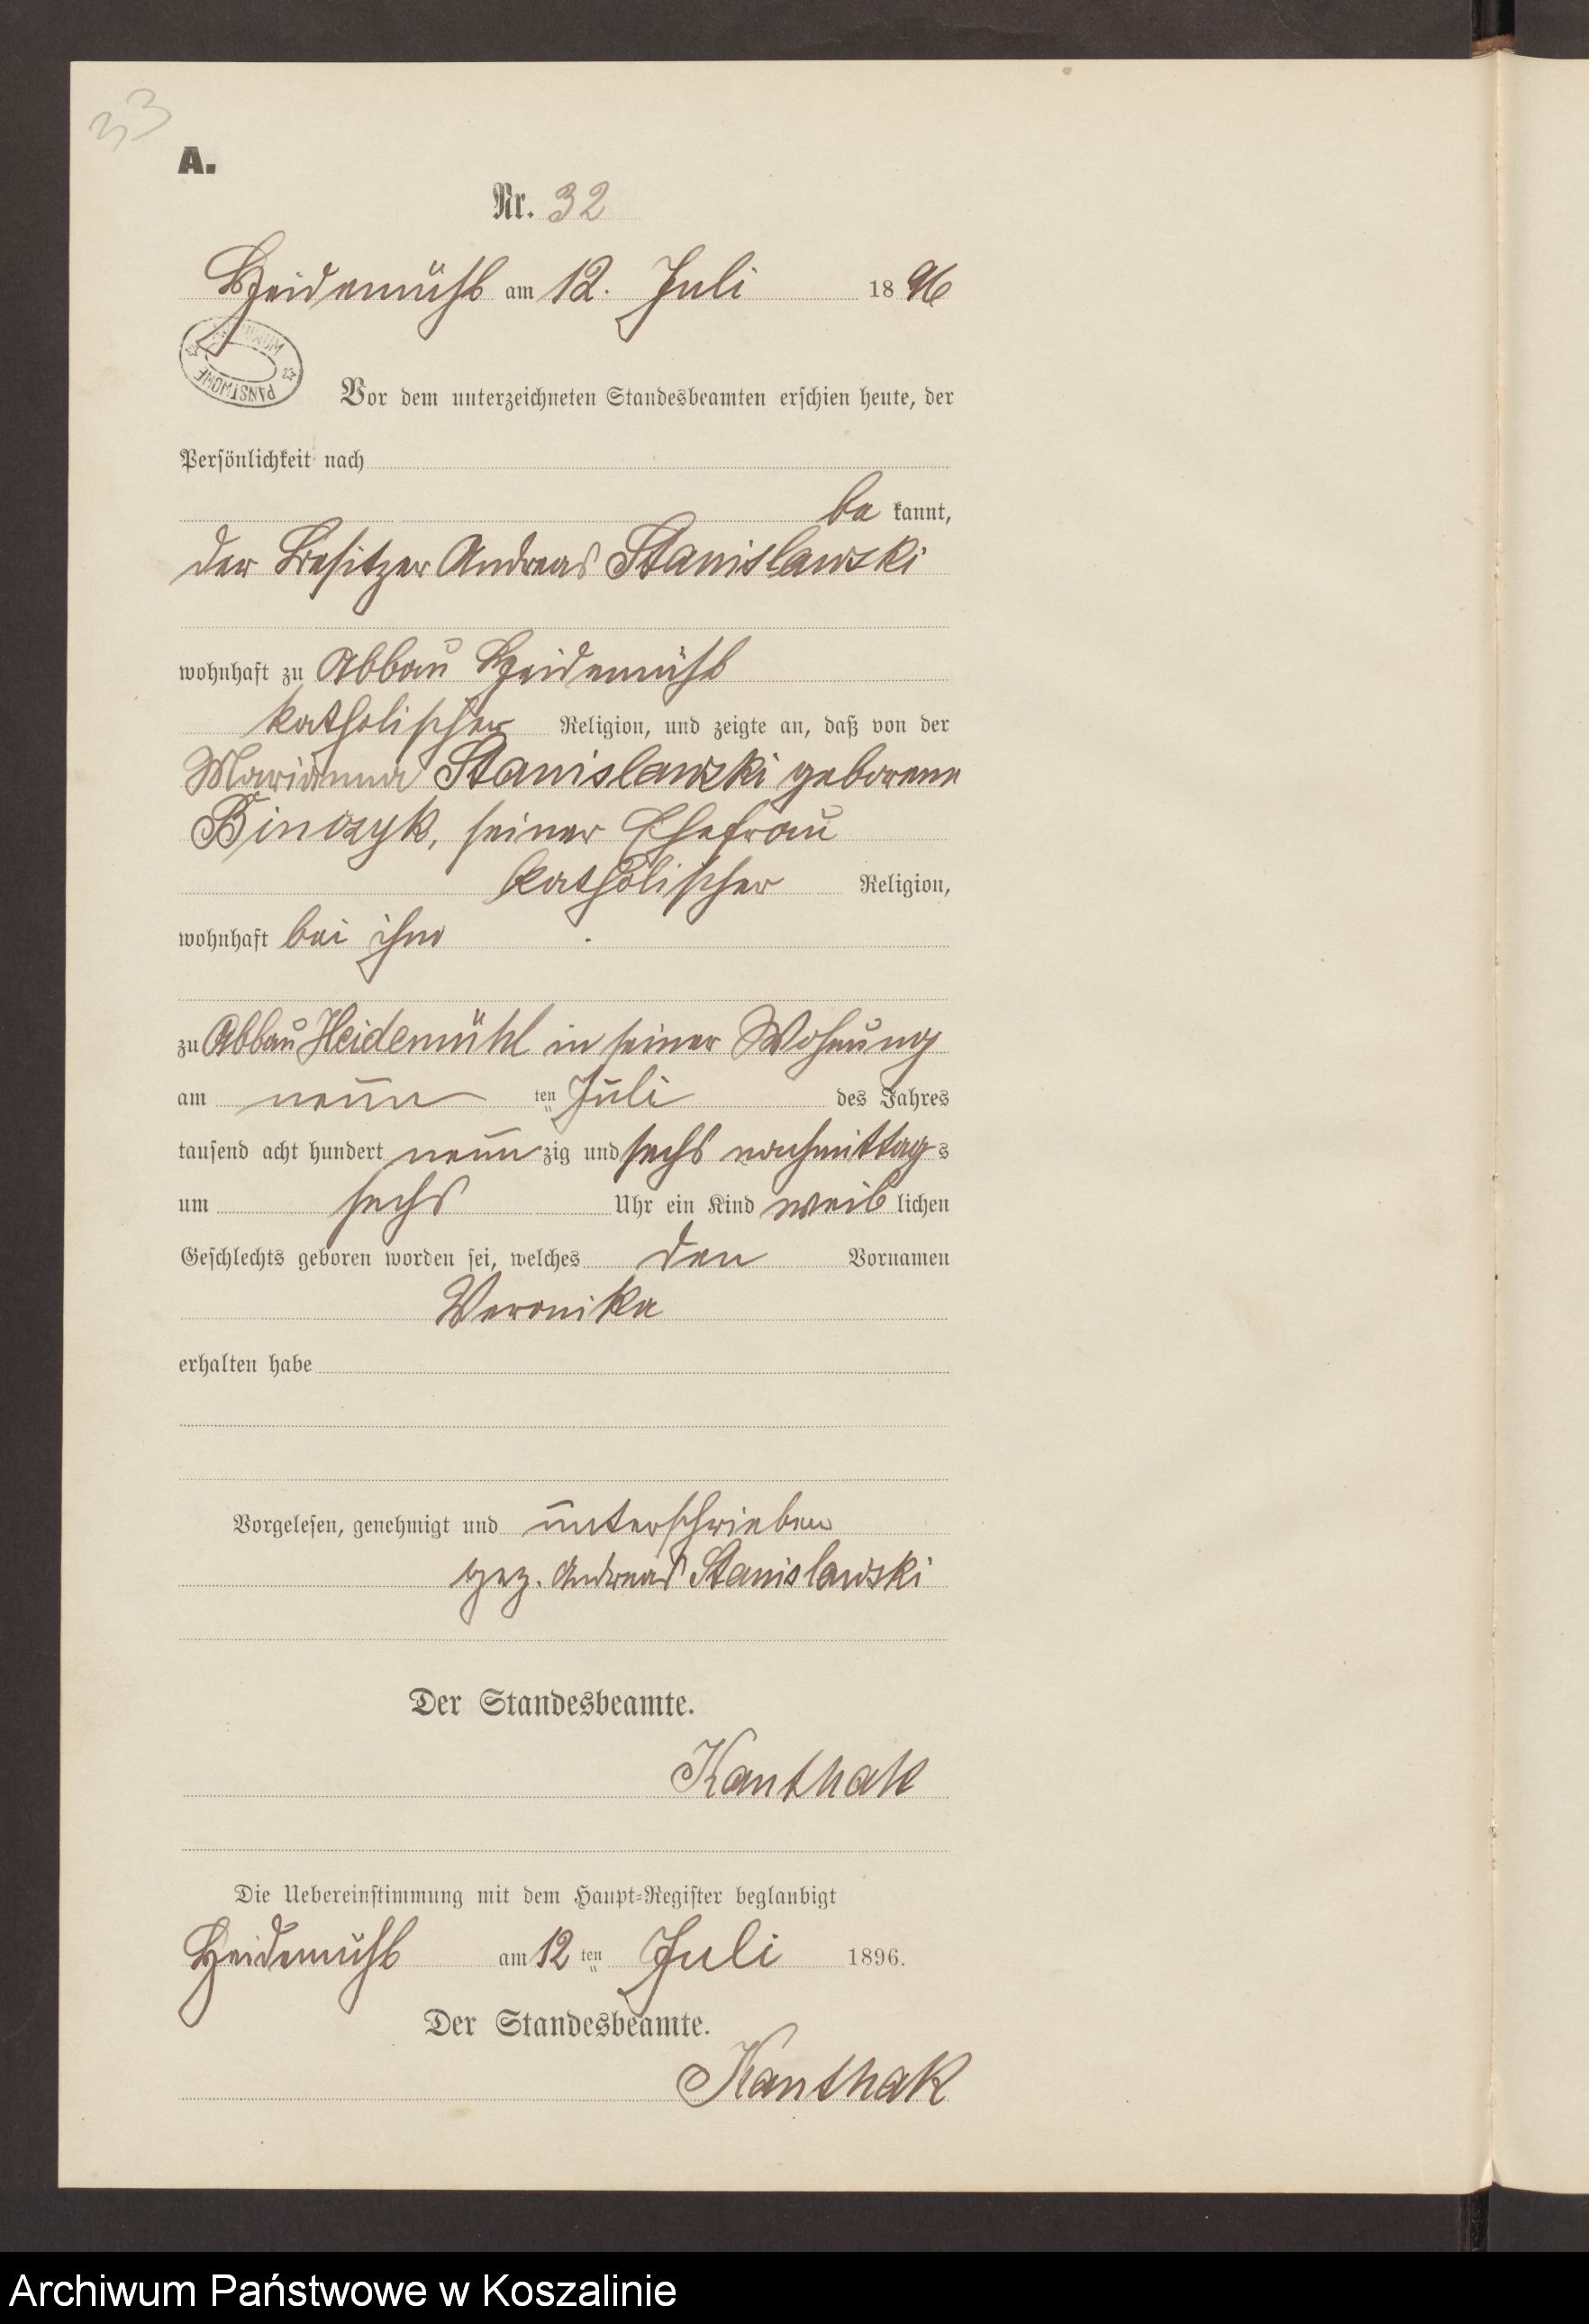 33
A.
Nr. 32
Heidemühl am 12. Juli 1896
PAŃSTWOWE
Vor dem unterzeichneten Standesbeamten erschien heute, der
Persönlichkeit nach
be kannt,
der Besitzer Andreas Stanislawski
wohnhaft zu Abbau Heidemühl
katholischer Religion, und zeigte an, daß von der
Marianna Stanislawski geborene
Binczyk, seiner Ehefrau
katholischer Religion,
wohnhaft bei ihm
zu Abbau Heidemühl in seiner Wohnung
am neun ten Juli des Jahres
tausend acht hundert neun zig und sechs nachmittag s
um sechs Uhr ein Kind weib lichen
Geschlechts geboren worden sei, welches den Vornamen
Veronika
erhalten habe
Vorgelesen, genehmigt und unterschrieben
gez. Andreas Stanislawski
Der Standesbeamte.
Kanthak
Die Uebereinstimmung mit dem Haupt-Register beglaubigt
Heidemühl am 12 ten Juli 1896.
Der Standesbeamte.
Kanthak
Archiwum Państwowe w Koszalinie